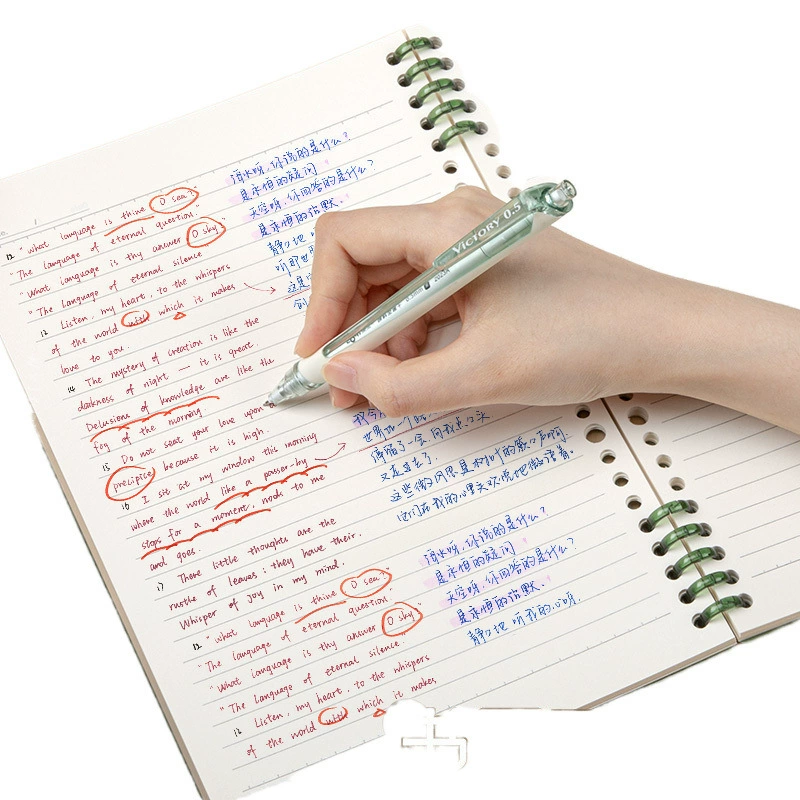 12 "what language is thine O sea?"
"The language of eternal question."
"What language is thy answer O sky
"The language of eternal silence
13 Listen, my heart, to the whispers
of the world with which it makes
love to you.
14 The mystery of creation is like the
darkness of night — it is great.
Delusions of knowledge are like the
fog of the morning
15 Do not seat your love upon a
precipice because it is high.
16 I sit at my window this morning
where the world like a passer-by
stops for a moment, nods to me
and goes.
17 There little thoughts are the
rustle of leaves: they have their.
Whisper of joy in my mind.
12 "what language is thine O sea?"
"The language of eternal question"
"What language is thy answer O sky
"The language of eternal silence
13 Listen, my heart, to the whispers
of the world with which it makes
海水呀,你说的是什么?
是永恒的疑问
天空呀,你回答的是什么?
是永恒的沉默.
静静地
听那世
这是
创
我今
世界如一个
停留了一会,向我点点头
又走过去了.
这些微
它们在我的心里
海水呀,你说的是什么?
是永恒的疑问
天空呀,你回答的是什么?
是永恒的沉默.
静静地 听 我的心呀.
VICTORY 0.5